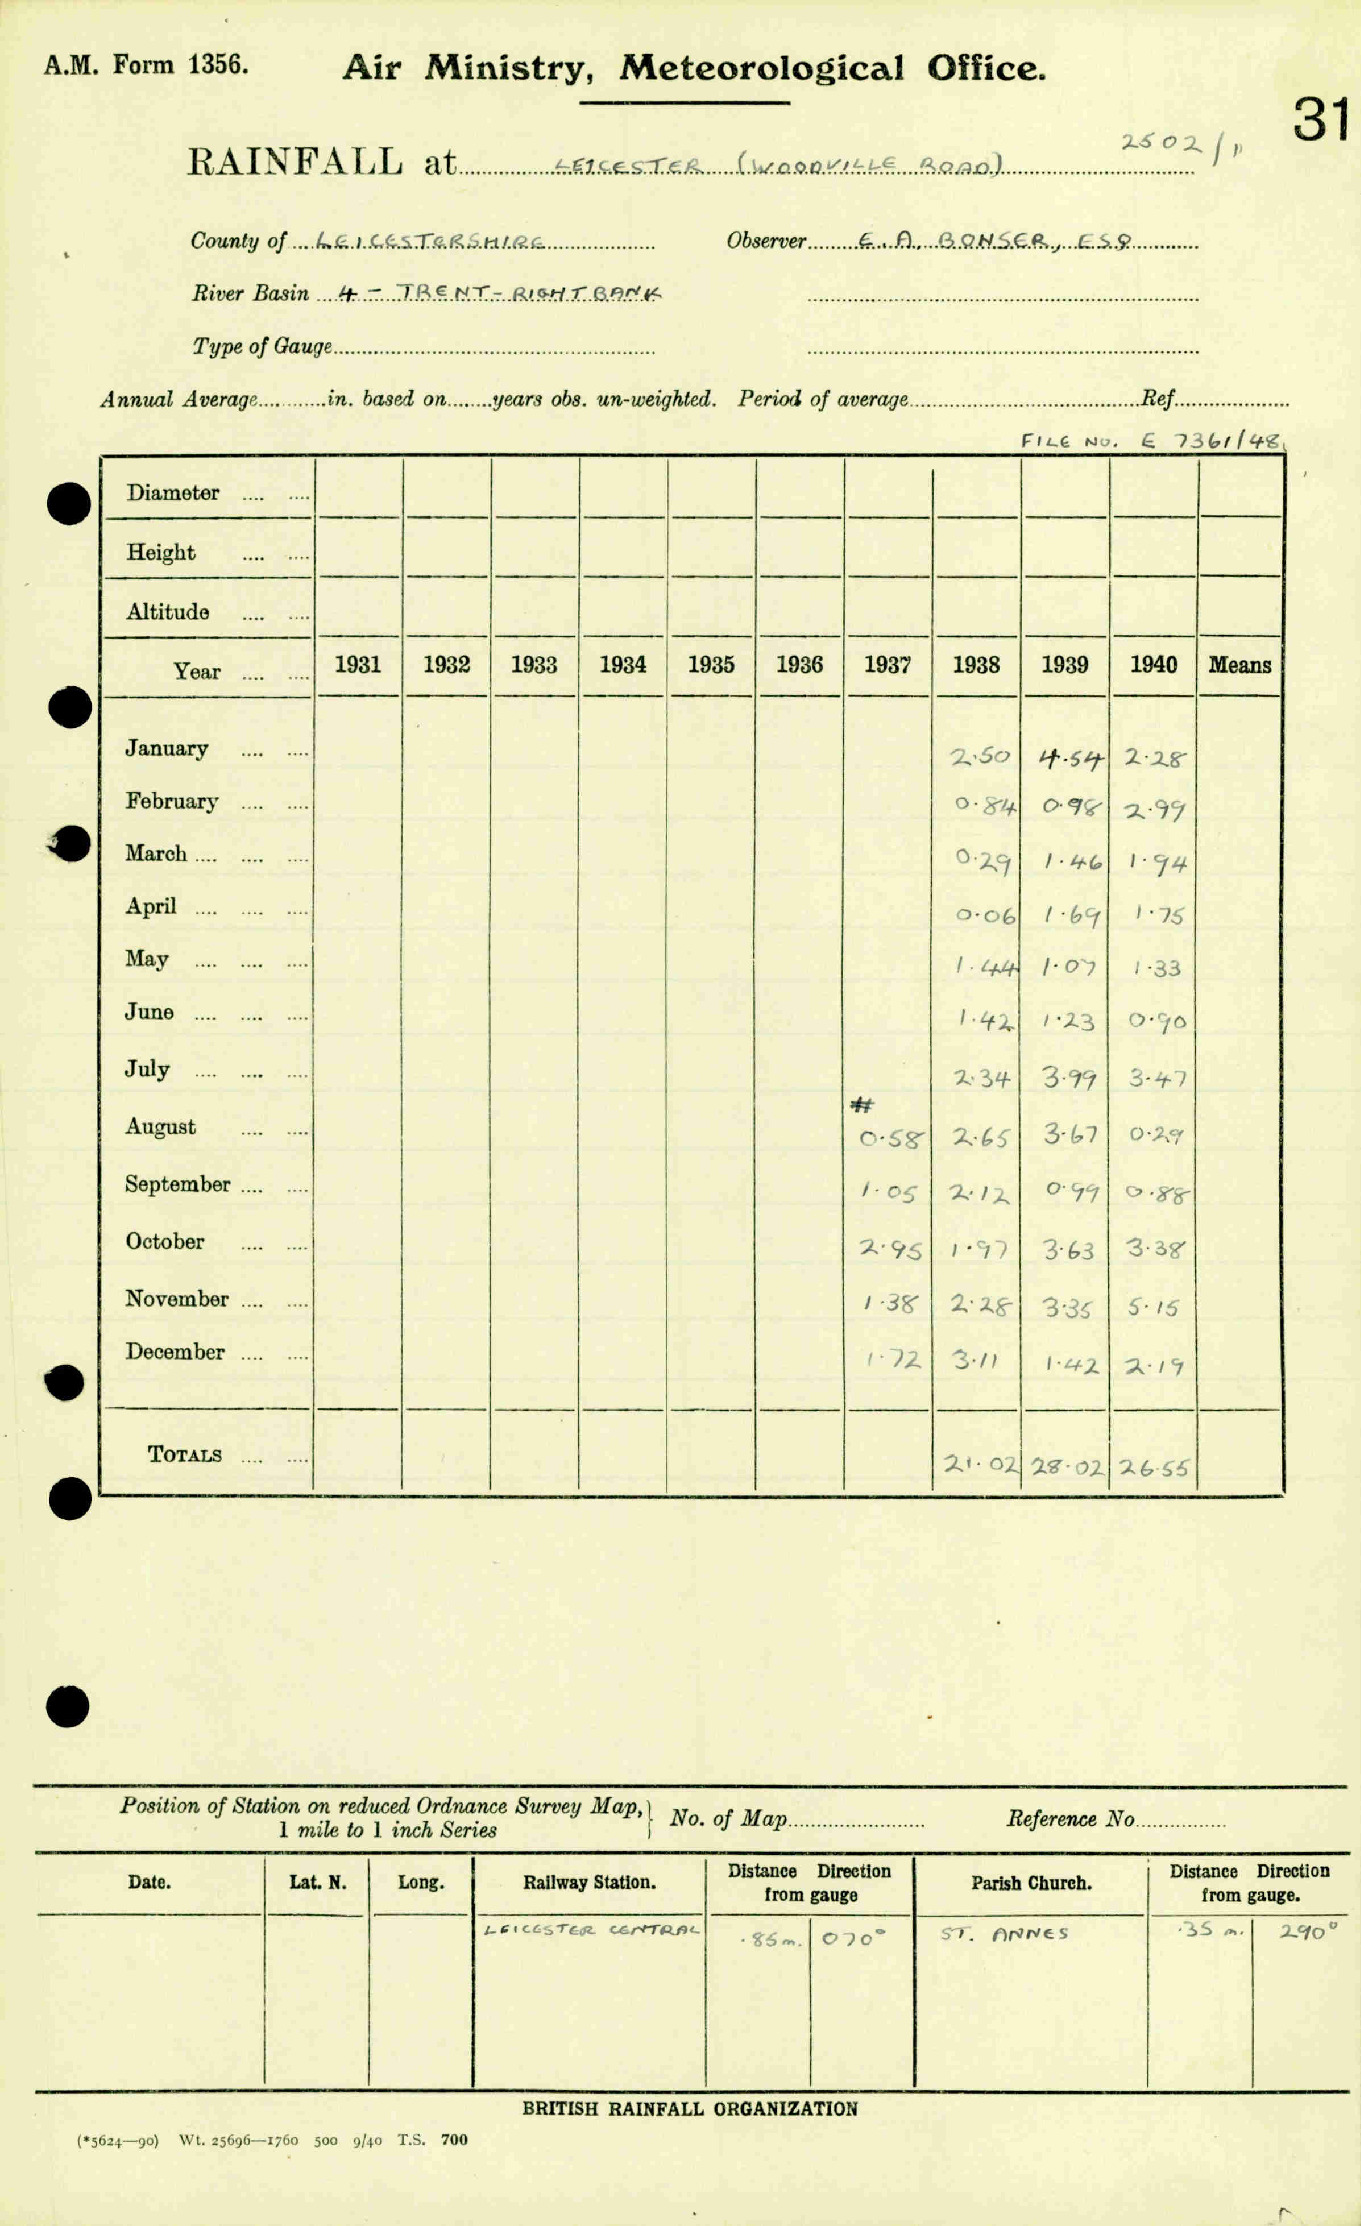 A.M. Form 1356. Air Ministry, Meteorological Office.
31
2502/11
RAINFALL at LEICESTER (WOODVILLE ROAD)
County of LEICESTERSHIRE Observer E. A. BONSER, ESQ
River Basin 4 - TRENT - RIGHT BANK
Type of Gauge
Annual Average in. based on years obs. un-weighted. Period of average Ref.
FILE NO. E 7361/48
Diameter
Height
Altitude
Year 1931 1932 1933 1934 1935 1936 1937 1938 1939 1940 Means
January 2.50 4.54 2.28
February 0.84 0.98 2.99
March 0.29 1.46 1.94
April 0.06 1.69 1.75
May 1.44 1.07 1.33
June 1.42 1.23 0.90
July 2.34 3.99 3.47
#
August 0.58 2.65 3.67 0.29
September 1.05 2.12 0.99 0.88
October 2.95 1.97 3.63 3.38
November 1.38 2.28 3.35 5.15
December 1.72 3.11 1.42 2.19
TOTALS 21.02 28.02 26.55
Position of Station on reduced Ordnance Survey Map, } No. of Map Reference No.
1 mile to 1 inch Series
Date. Lat. N. Long. Railway Station. Distance Direction from gauge Parish Church. Distance Direction from gauge.
LEICESTER CENTRAL .85 m. 070° ST. ANNES .35 m. 290°
BRITISH RAINFALL ORGANIZATION
(*5624—90) Wt. 25696—1760 500 9/40 T.S. 700